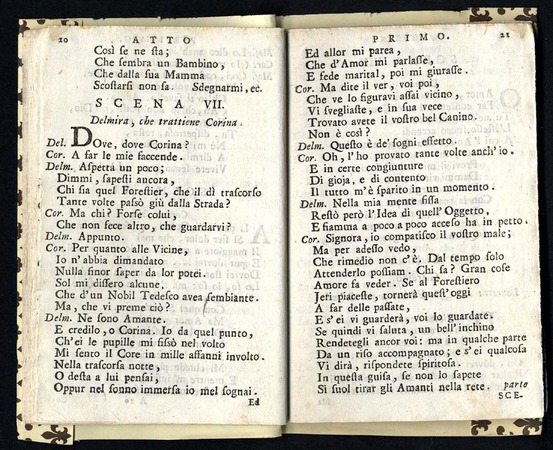 20 ATTO
Così se ne sta;
Che sembra un Bambino,
Che dalla sua Mamma
Scostarsi non sa. Sdegnarmi, ec.
SCENA VII.
Delmira, che trattiene Corina.
Del. DOve, dove Corina?
Cor. A far le mie faccende.
Delm. Aspetta un poco;
Dimmi, sapesti ancora,
Chi sia quel Forestier, che il dì trascorso
Tante volte passò giù dalla Strada?
Cor. Ma chi? Forse colui,
Che non fece altro, che guardarvi?
Delm. Appunto.
Cor. Per quanto alle Vicine,
Io n'abbia dimandato
Nulla finor saper da lor potei.
Sol mi dissero alcune,
Che d'un Nobil Tedesco avea sembiante.
Ma, che vi preme ciò?
Delm. Ne sono Amante.
E credilo, o Corina. Io da quel punto,
Ch'ei le pupille mi fissò nel volto
Mi sento il Core in mille affanni involto.
Nella trascorsa notte,
O desta a lui pensai,
Oppur nel sonno immersa io mel sognai.
Ed
PRIMO. 21
Ed allor mi parea,
Che d'Amor mi parlasse,
E fede marital, poi mi giurasse.
Cor. Ma dite il ver, voi poi,
Che ve lo figuravi assai vicino,
Vi svegliaste, e in sua vece
Trovato avete il vostro bel Canino.
Non è così?
Delm. Questo è de' sogni effetto.
Cor. Oh, l'ho provato tante volte anch'io.
E in certe congiunture
Di gioja, e di contento
Il tutto m'è sparito in un momento.
Delm. Nella mia mente fissa
Restò però l'Idea di quell'Oggetto,
E fiamma a poco a poco acceso ha in petto.
Cor. Signora, io compatisco il vostro male;
Ma per adesso vedo,
Che rimedio non c'è. Dal tempo solo
Attenderlo possiam. Chi sa? Gran cose
Amore fa veder. Se al Forestiero
Jeri piaceste, tornerà quest'oggi
A far delle passate,
E s'ei vi guarderà, voi lo guardate.
Se quindi vi saluta, un bell'inchino
Rendetegli ancor voi: ma in qualche parte
Da un riso accompagnato; e s'ei qualcosa
Vi dirà, rispondete spiritosa.
In questa guisa, se non lo sapete
Si suol tirar gli Amanti nella rete. parte
SCE-